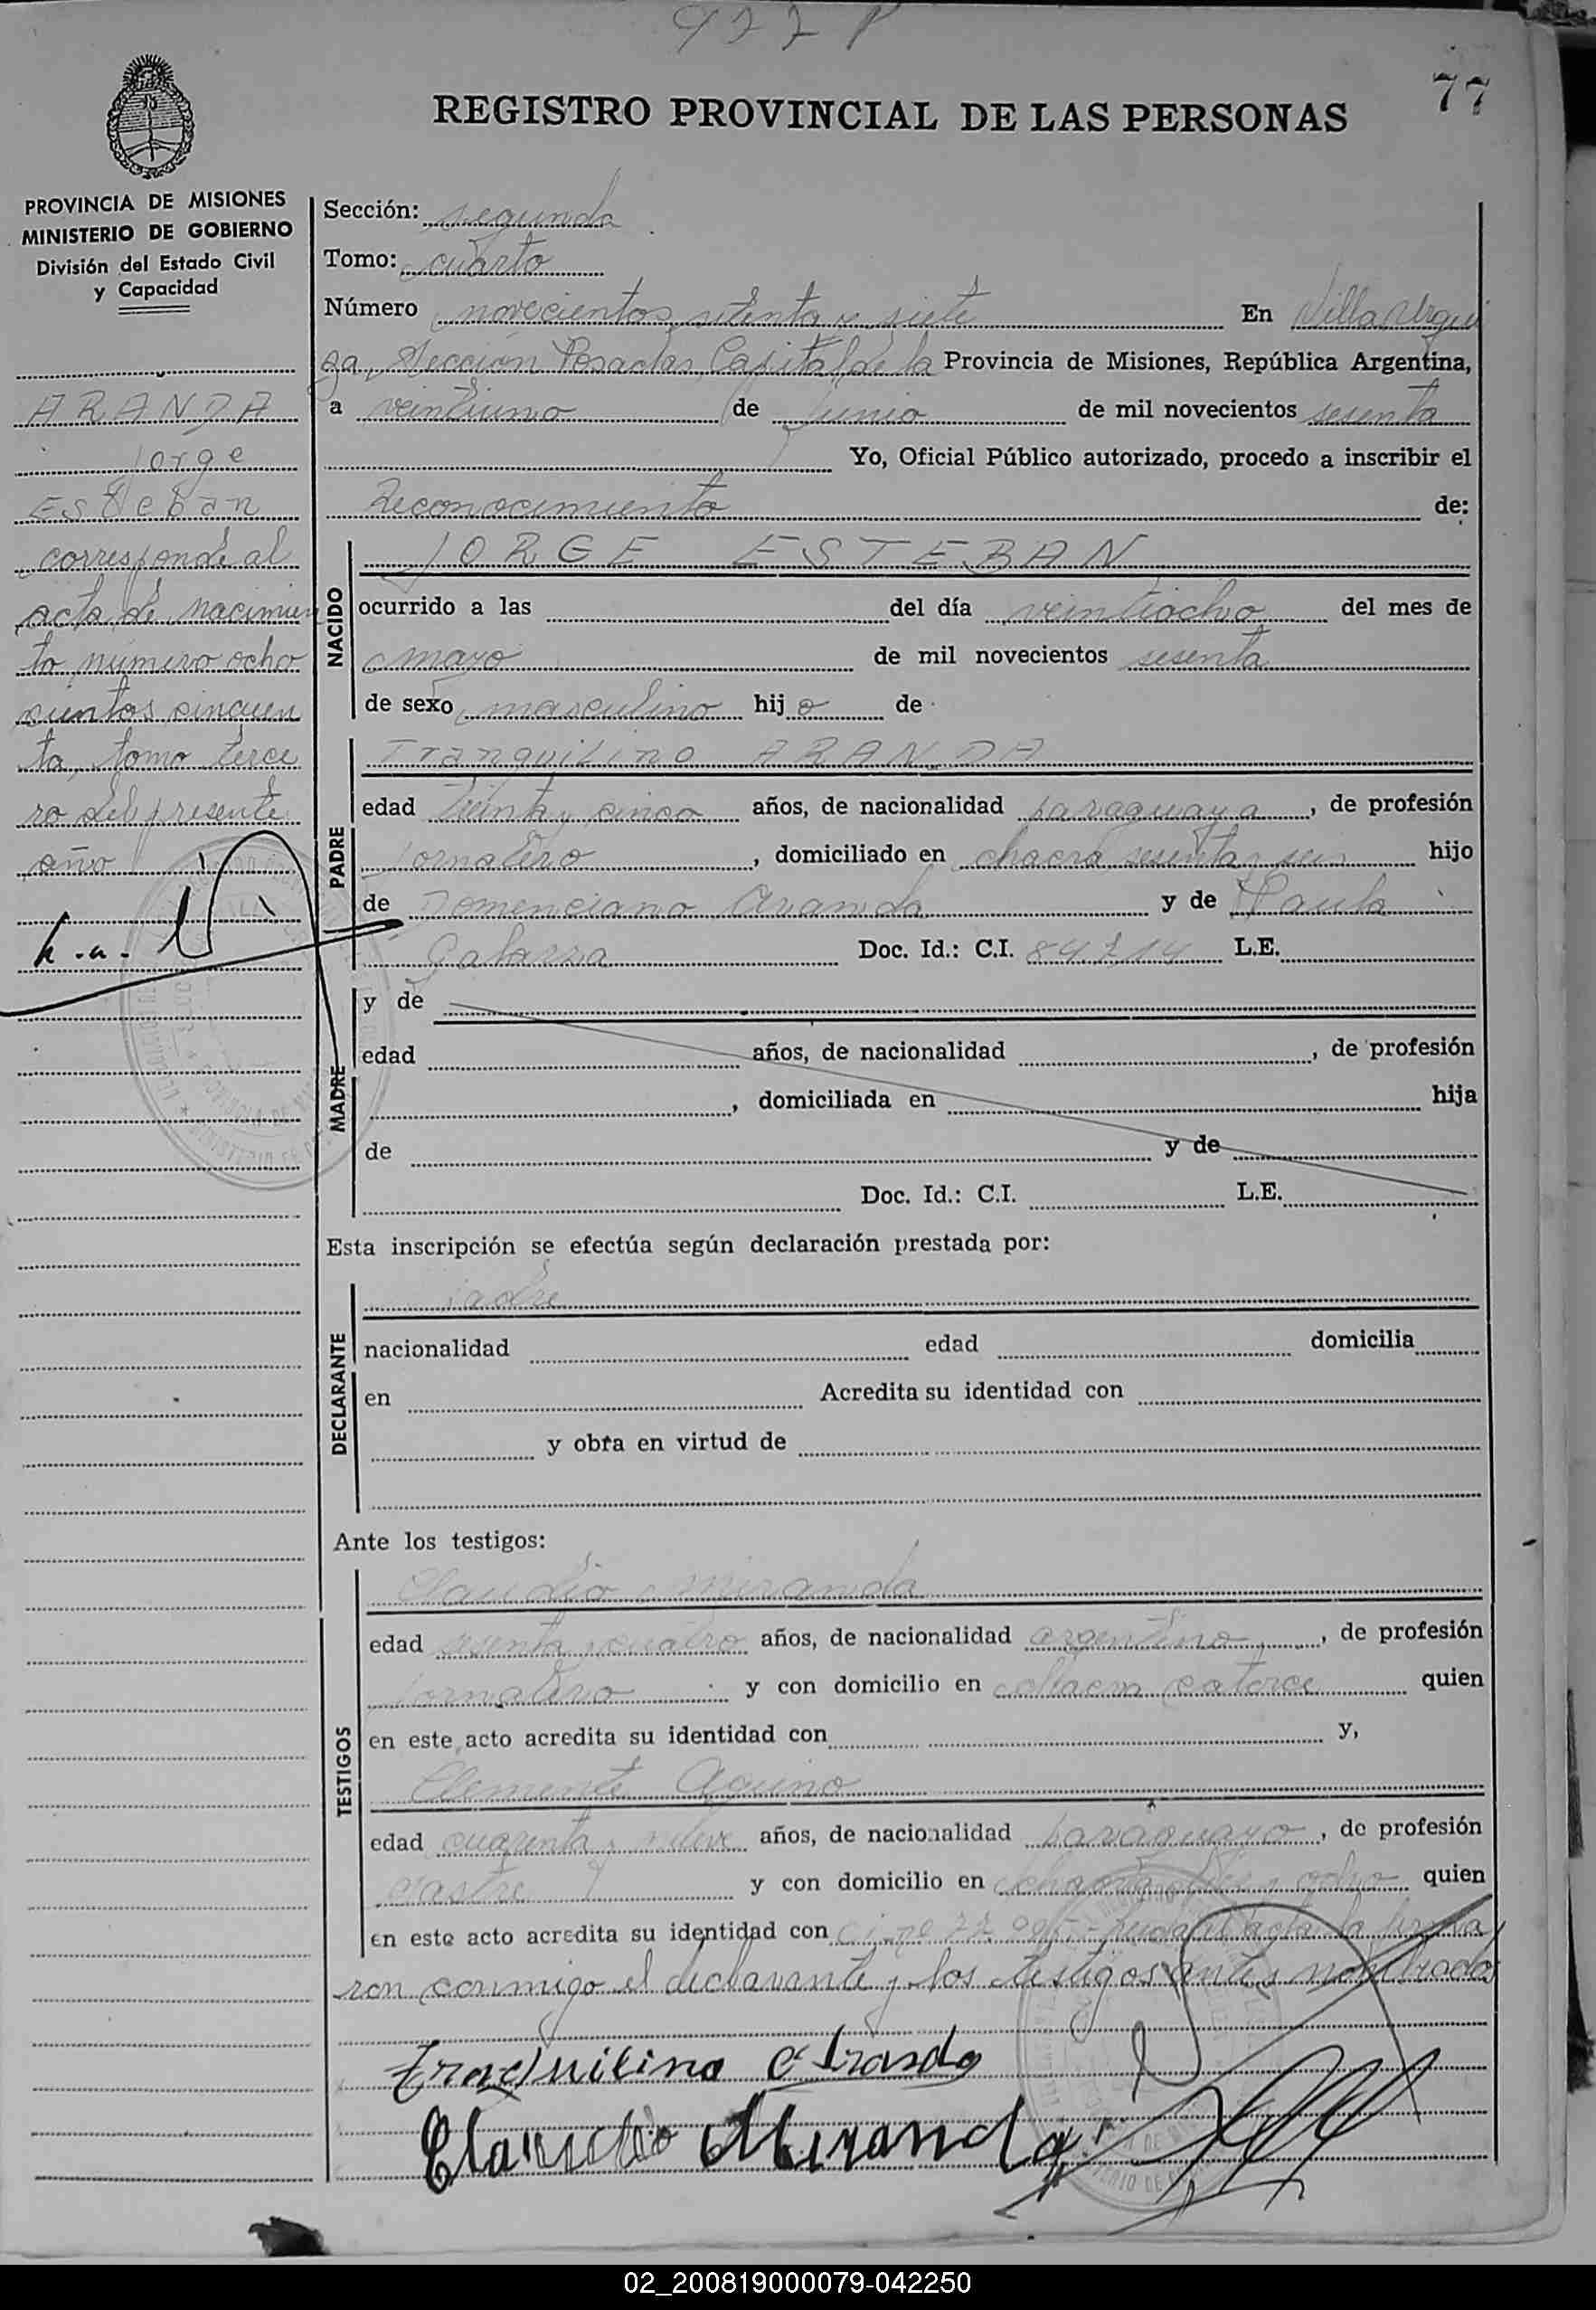 977 P
77
REGISTRO PROVINCIAL DE LAS PERSONAS
PROVINCIA DE MISIONES
MINISTERIO DE GOBIERNO
División del Estado Civil
y Capacidad
ARANDA
Jorge
Esteban
corresponde al
acta de nacimien
to, número ocho
cientos cincuen
ta, tomo terce
ro del presente
año
h.a.
Sección: segunda
Tomo: cuarto
Número novecientos setenta y siete En Villa Urqui
za, Sección Posadas, Capital de la Provincia de Misiones, República Argentina,
a veintiuno de junio de mil novecientos sesenta
Yo, Oficial Público autorizado, procedo a inscribir el
Reconocimiento de:
NACIDO
JORGE ESTEBAN
ocurrido a las del día veintiocho del mes de
mayo de mil novecientos sesenta
de sexo masculino hijo de
PADRE
Tranquilino ARANDA
edad treinta y cinco años, de nacionalidad paraguaya, de profesión
jornalero, domiciliado en chacra sesenta y seis hijo
de Domenciano Aranda y de Paula
Galarza Doc. Id.: C.I. 84.714 L.E.
MADRE
y de
edad años, de nacionalidad , de profesión
, domiciliada en hija
de y de
Doc. Id.: C.I. L.E.
Esta inscripción se efectúa según declaración prestada por:
DECLARANTE
padre
nacionalidad edad domicilia
en Acredita su identidad con
y obra en virtud de
Ante los testigos:
TESTIGOS
Claudio Miranda
edad sesenta y cuatro años, de nacionalidad argentino, de profesión
jornalero y con domicilio en chacra catorce quien
en este acto acredita su identidad con y,
Clemente Aquino
edad cuarenta y nueve años, de nacionalidad paraguayo, de profesión
sastre y con domicilio en chacra y ocho quien
en este acto acredita su identidad con acta la firma
ron conmigo el declarante y los testigos antes nombrados
Tranquilino Aranda
Claudio Miranda
02_200819000079-042250